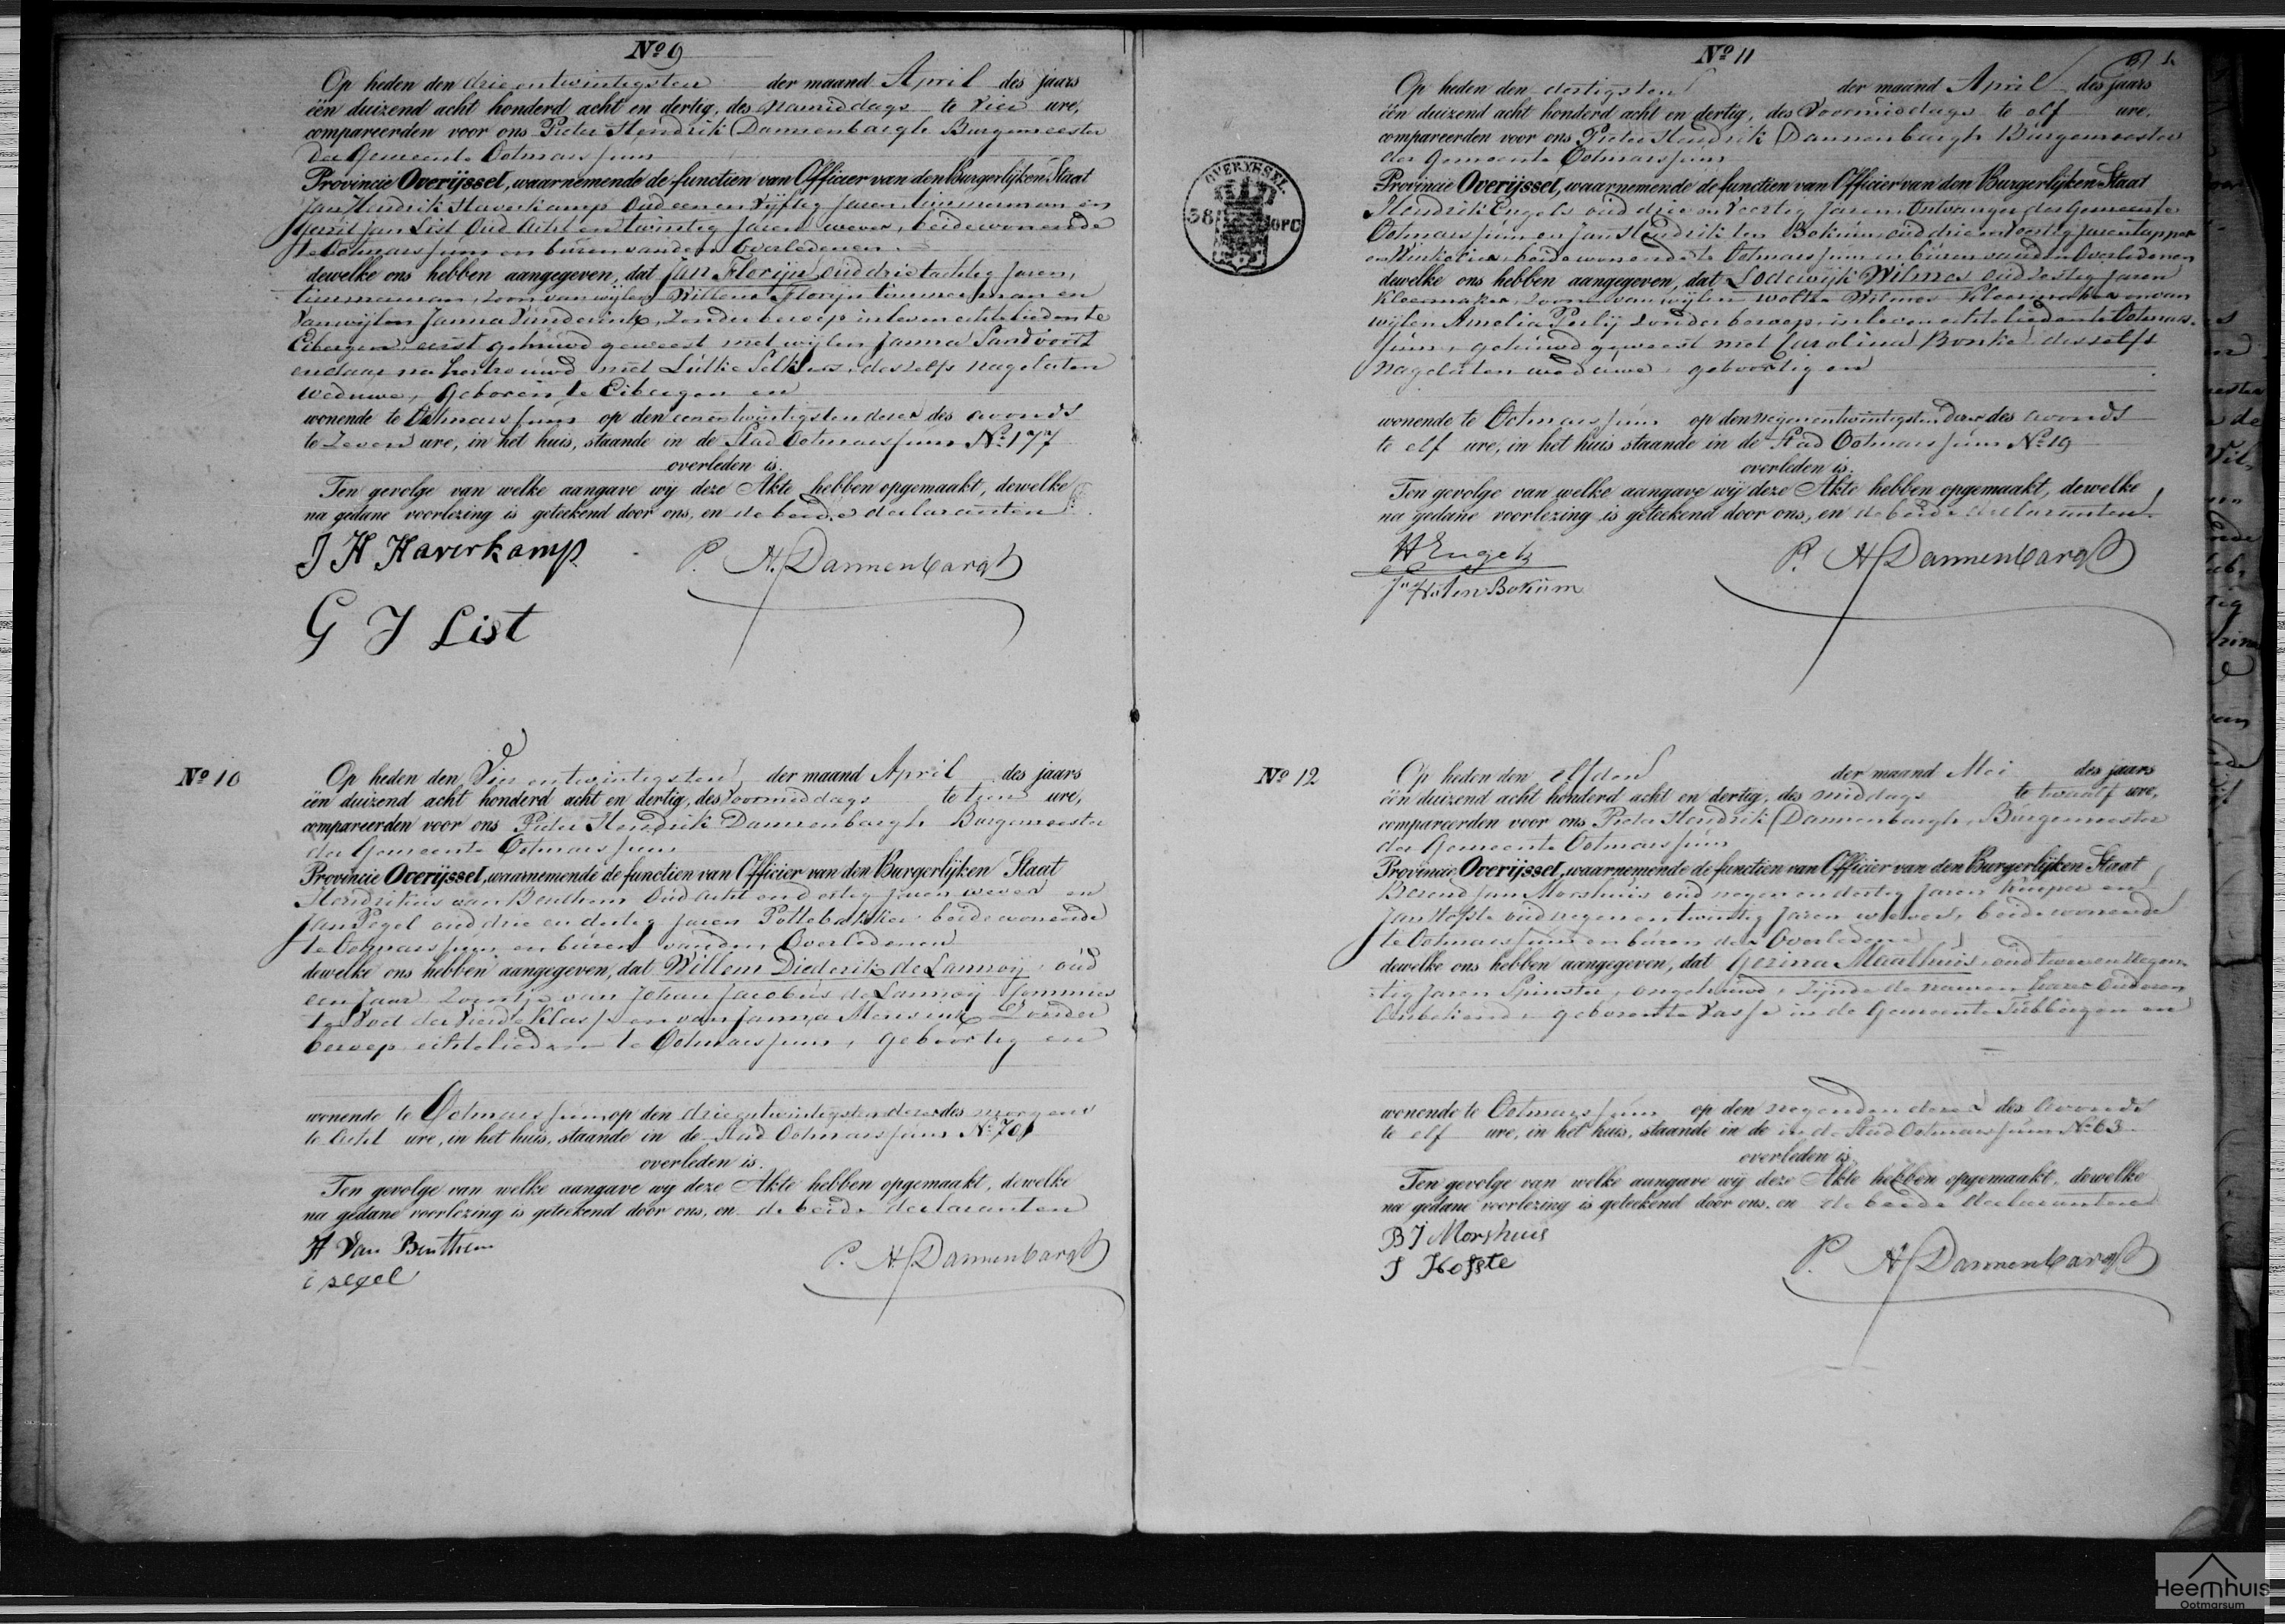 Nº 9
Op heden den drie en twintigsten der maand April des jaars
één duizend acht honderd acht en dertig, des namiddags te vier ure,
compareerden voor ons Pieter Hendrik Dannenbargh Burgemeester
der Gemeente Ootmarssum
Provincie Overijssel, waarnemende de functien van Officier van den Burgerlijken Staat
Jan Hendrik Haverkamp Oud een en vijftig Jaren, timmerman en
Gerrit Jan List Oud Acht en twintig Jaren wever, beide wonende
te Ootmarssum en buren van den Overledenen
dewelke ons hebben aangegeven, dat Jan Florijn oud drie tachtig Jaren,
timmerman, zoon van wijlen Willem Florijn timmerman en
van wijlen Janna, Zonder beroep in leven echtelieden te
Eibergen, eerst gehuwd geweest met wijlen Janna Sandvoort
en daar na hertrouwd met Lutke deszelfs nagelaten
weduwe, Geboren te Eibergen en
wonende te Ootmarssum op den een en twintigsten dezer des avonds
te Zeven ure, in het huis, staande in de Stad Ootmarssum Nº 177
overleden is.
Ten gevolge van welke aangave wij deze Akte hebben opgemaakt, dewelke
na gedane voorlezing is geteekend door ons, en de beide declaranten
J H Haverkamp P. H. Dannenbargh
G J List
Nº 10
Op heden den Vier en twintigsten der maand April des jaars
één duizend acht honderd acht en dertig, des Voormiddags te tien ure,
compareerden voor ons Pieter Hendrik Dannenbargh Burgemeester
der Gemeente Ootmarssum
Provincie Overijssel, waarnemende de functien van Officier van den Burgerlijken Staat
Hendrikus van Benthem Oud acht en dertig Jaren wever en
Jan Pegel oud drie en dertig Jaren Pottebakker beide wonende
te Ootmarssum en buren van den Overledenen
dewelke ons hebben aangegeven, dat Willem Diederik de Lannoij oud
een Jaar Zoontje van Johan Jacobus de Lannoij Commies
te Voet der Vierde Klasse en van Janna Mensink Zonder
beroep echtelieden te Ootmarssum, Geboortig en
wonende te Ootmarssum op den drie en twintigsten dezer des morgens
te acht ure, in het huis, staande in de Stad Ootmarssum Nº 701
overleden is.
Ten gevolge van welke aangave wij deze Akte hebben opgemaakt, dewelke
na gedane voorlezing is geteekend door ons, en de beide declaranten
H Van Benthem P. H. Dannenbargh
Nº 11
Op heden den dertigsten der maand April des jaars
één duizend acht honderd acht en dertig, des Voormiddags te elf ure,
compareerden voor ons Pieter Hendrik Dannenbargh Burgemeester
der Gemeente Ootmarssum
OVERYSSEL.
38
Provincie Overijssel, waarnemende de functien van Officier van den Burgerlijken Staat
Hendrik Engels oud drie en Veertig Jaren, Ontvanger der Gemeente
Ootmarssum en Jan Hendrik ten Bokum, oud drie en veertig Jaren tapper
en Winkelier, beide wonende te Ootmarssum en buren van den Overledenen
dewelke ons hebben aangegeven, dat Lodewijk Wilmes oud zestig Jaren
Kleermaker, Zoon van wijlen Wolter Wilmes Kleermaker en van
wijlen Amelia Zonder beroep, in leven echtelieden te Ootmars-
sum, gehuwd geweest met Carolina Bonke deszelfs
nagelaten weduwe, geboortig en
wonende te Ootmarssum op den negen en twintigsten dezer des avonds
te elf ure, in het huis staande in de Stad Ootmarssum Nº 19
overleden is.
Ten gevolge van welke aangave wij deze Akte hebben opgemaakt, dewelke
na gedane voorlezing is geteekend door ons, en de beide declaranten
H Engels P. H. Dannenbargh
ten Bokum
Nº 12
Op heden den elfden der maand Mei des jaars
één duizend acht honderd acht en dertig, des middags te twaalf ure,
compareerden voor ons Pieter Hendrik Dannenbargh, Burgemeester
der Gemeente Ootmarssum
Provincie Overijssel, waarnemende de functien van Officier van den Burgerlijken Staat
Berend Jan Morshuis oud negen en dertig Jaren kuiper en
Jan Hofste oud negen en twintig Jaren wever, beide wonende
te Ootmarssum en buren der Overledene
dewelke ons hebben aangegeven, dat Gezina Maathuis, oud twee en negen-
tig Jaren Spinster, ongehuwd, zijnde de namen harer Ouderen
Onbekend, geboren te Vasse in de Gemeente Tubbergen en
wonende te Ootmarssum op den negenden dezer des Avonds
te elf ure, in het huis, staande in de in de Stad Ootmarssum Nº 63
overleden is
Ten gevolge van welke aangave wij deze Akte hebben opgemaakt, dewelke
na gedane voorlezing is geteekend door ons, en de beide declaranten
B J Morshuis P. H. Dannenbargh
J Hofste
Heemhuis
Ootmarsum